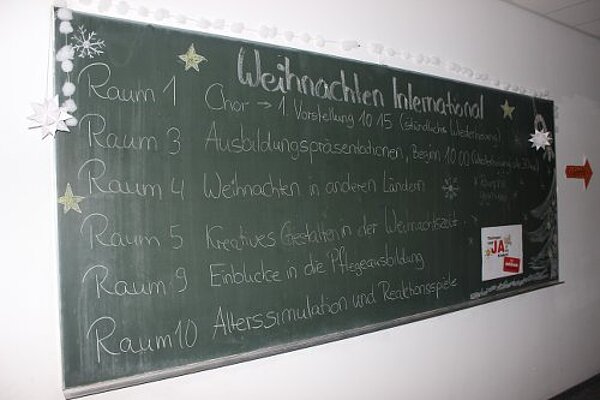 Weihnachten International
Raum 1 Chor → 1 Vorstellung 10 15 (stündliche Wiederholung)
Raum 3 Ausbildungspräsentationen, Beginn 10 00
Raum 4 Weihnachten in anderen Ländern
Raum 5 Kreatives Gestalten in der Weihnachtszeit
Raum 9 Einblicke in die Pflegeausbildung
Raum 10 Alterssimulation und Reaktionsspiele
JA